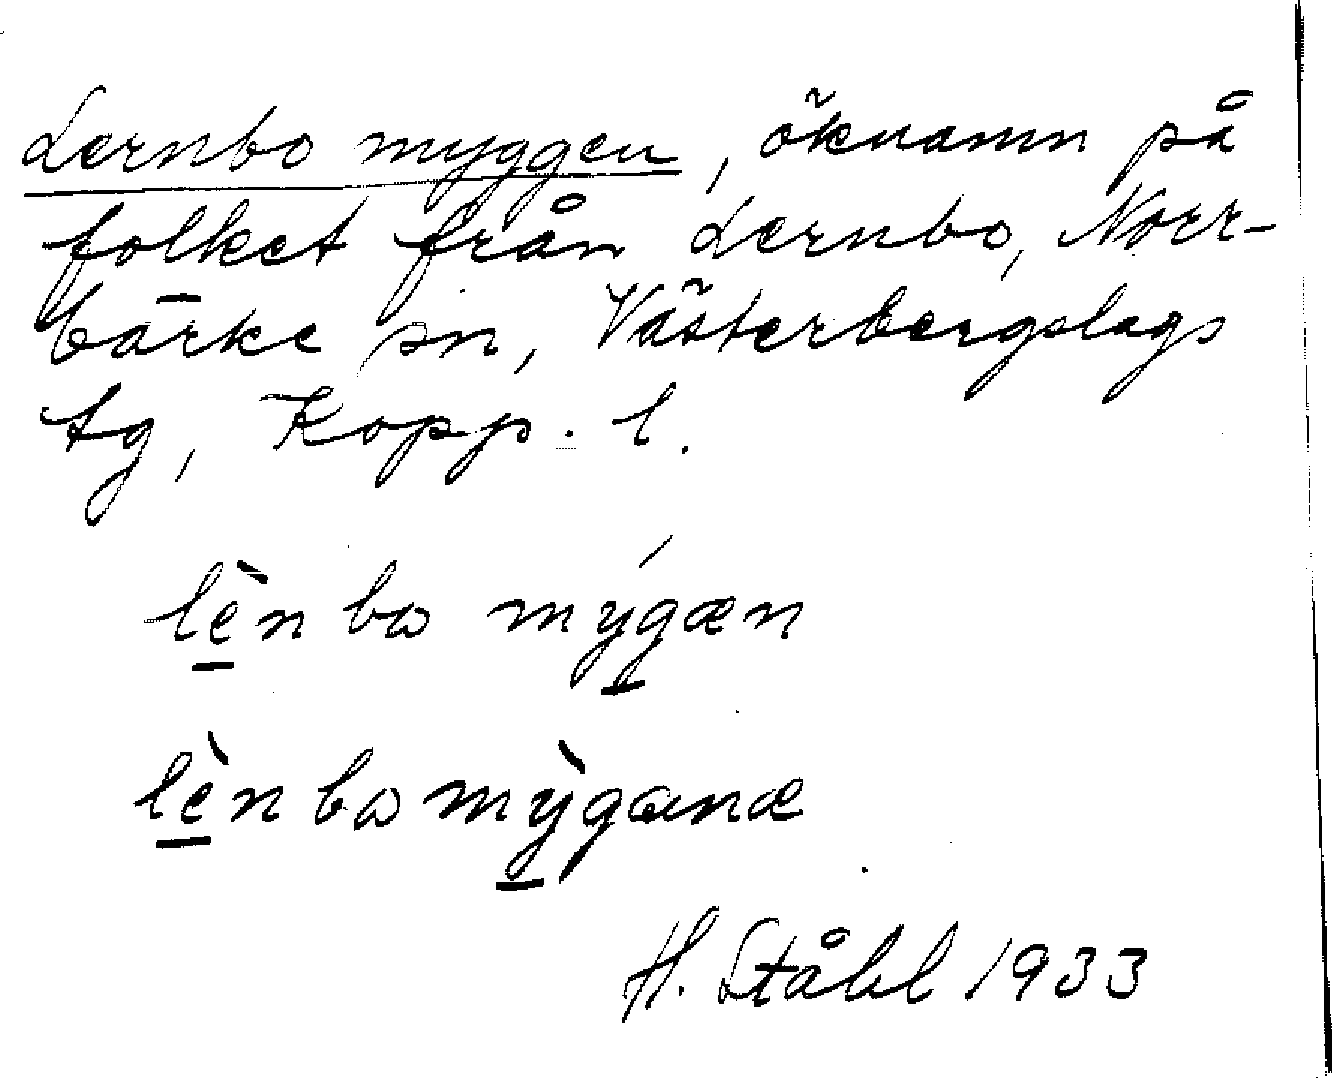 Lernbo myggen, öknamn på
folket från Lernbo, Norr-
bärke sn, Västerbergslags
tg, Kopp. l.
lènbo mýgæn
lènbo mỳgænæ
H. Ståhl 1933